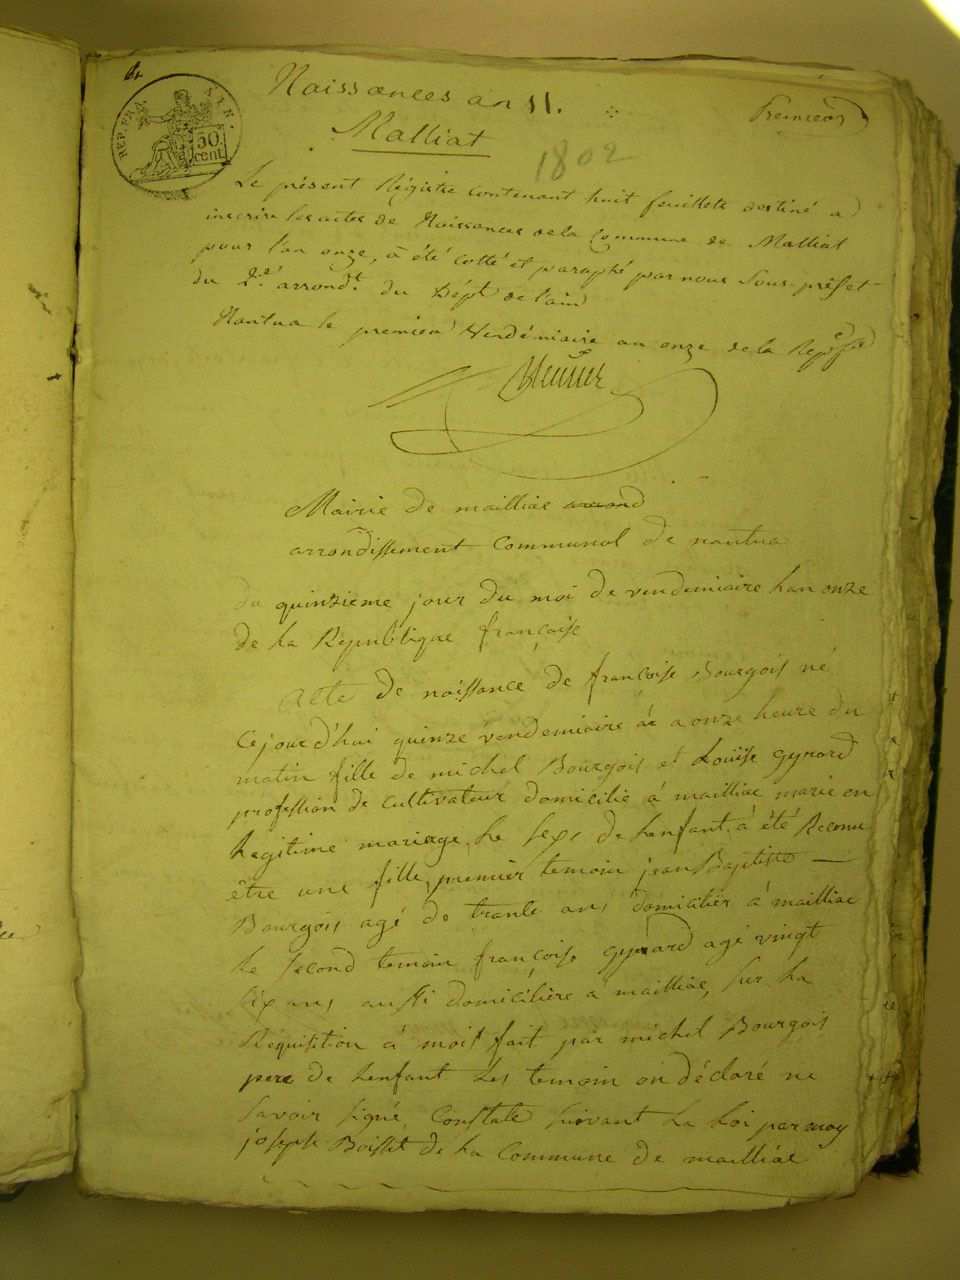 REP. FRA. A. I. N.
50. cent.
Naissances an 11.
Premier
Malliat
1802
Le présent Régistre contenant huit feuillets destiné a
inscrire les actes de Naissances de la Commune de Malliat
pour l'an onze, a été cotté et paraphé par nous Sous-préfet
du 2.e arrond.t du Dépt de l'ain
Nantua le premier Vendémiaire an onze de la
Mairie de mailliac
arrondissement Communal de nantua
du quinzieme jour du moi de vendemiaire han onze
de la Republique françoise
acte de naissance de françoise Bourgois né
Cejourd'hui quinze vendemiaire a onze heure du
matin fille de michel Bourgois et Louise gyrard
profession de cultivateur domicilié á mailliac marié en
Legitime mariage, Le sexe de henfant, á été Reconu
être une fille, premier temoin jean Baptiste
Bourgois agé de trante ans domicilier á mailliac
Le second temoin françoise gyrard agé vingt
six ans aussi domicilière a mailliac, sur La
Réquisition á moit fait par michel Bourgois
pere de henfant Les temoin on déclaré ne
savoir signé, Constate suivant La Loi par moy
joseph Boisset de La Commune de mailliac